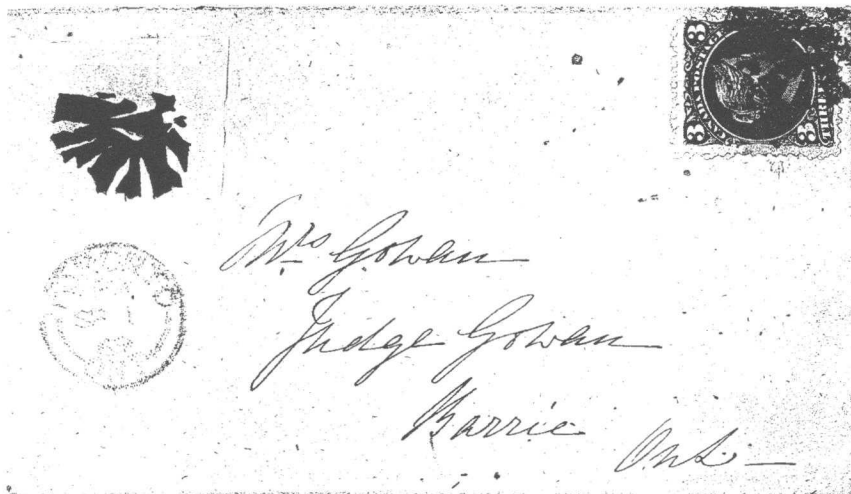 3 3
Mrs Gowan
Judge Gowan
Barrie
Ont